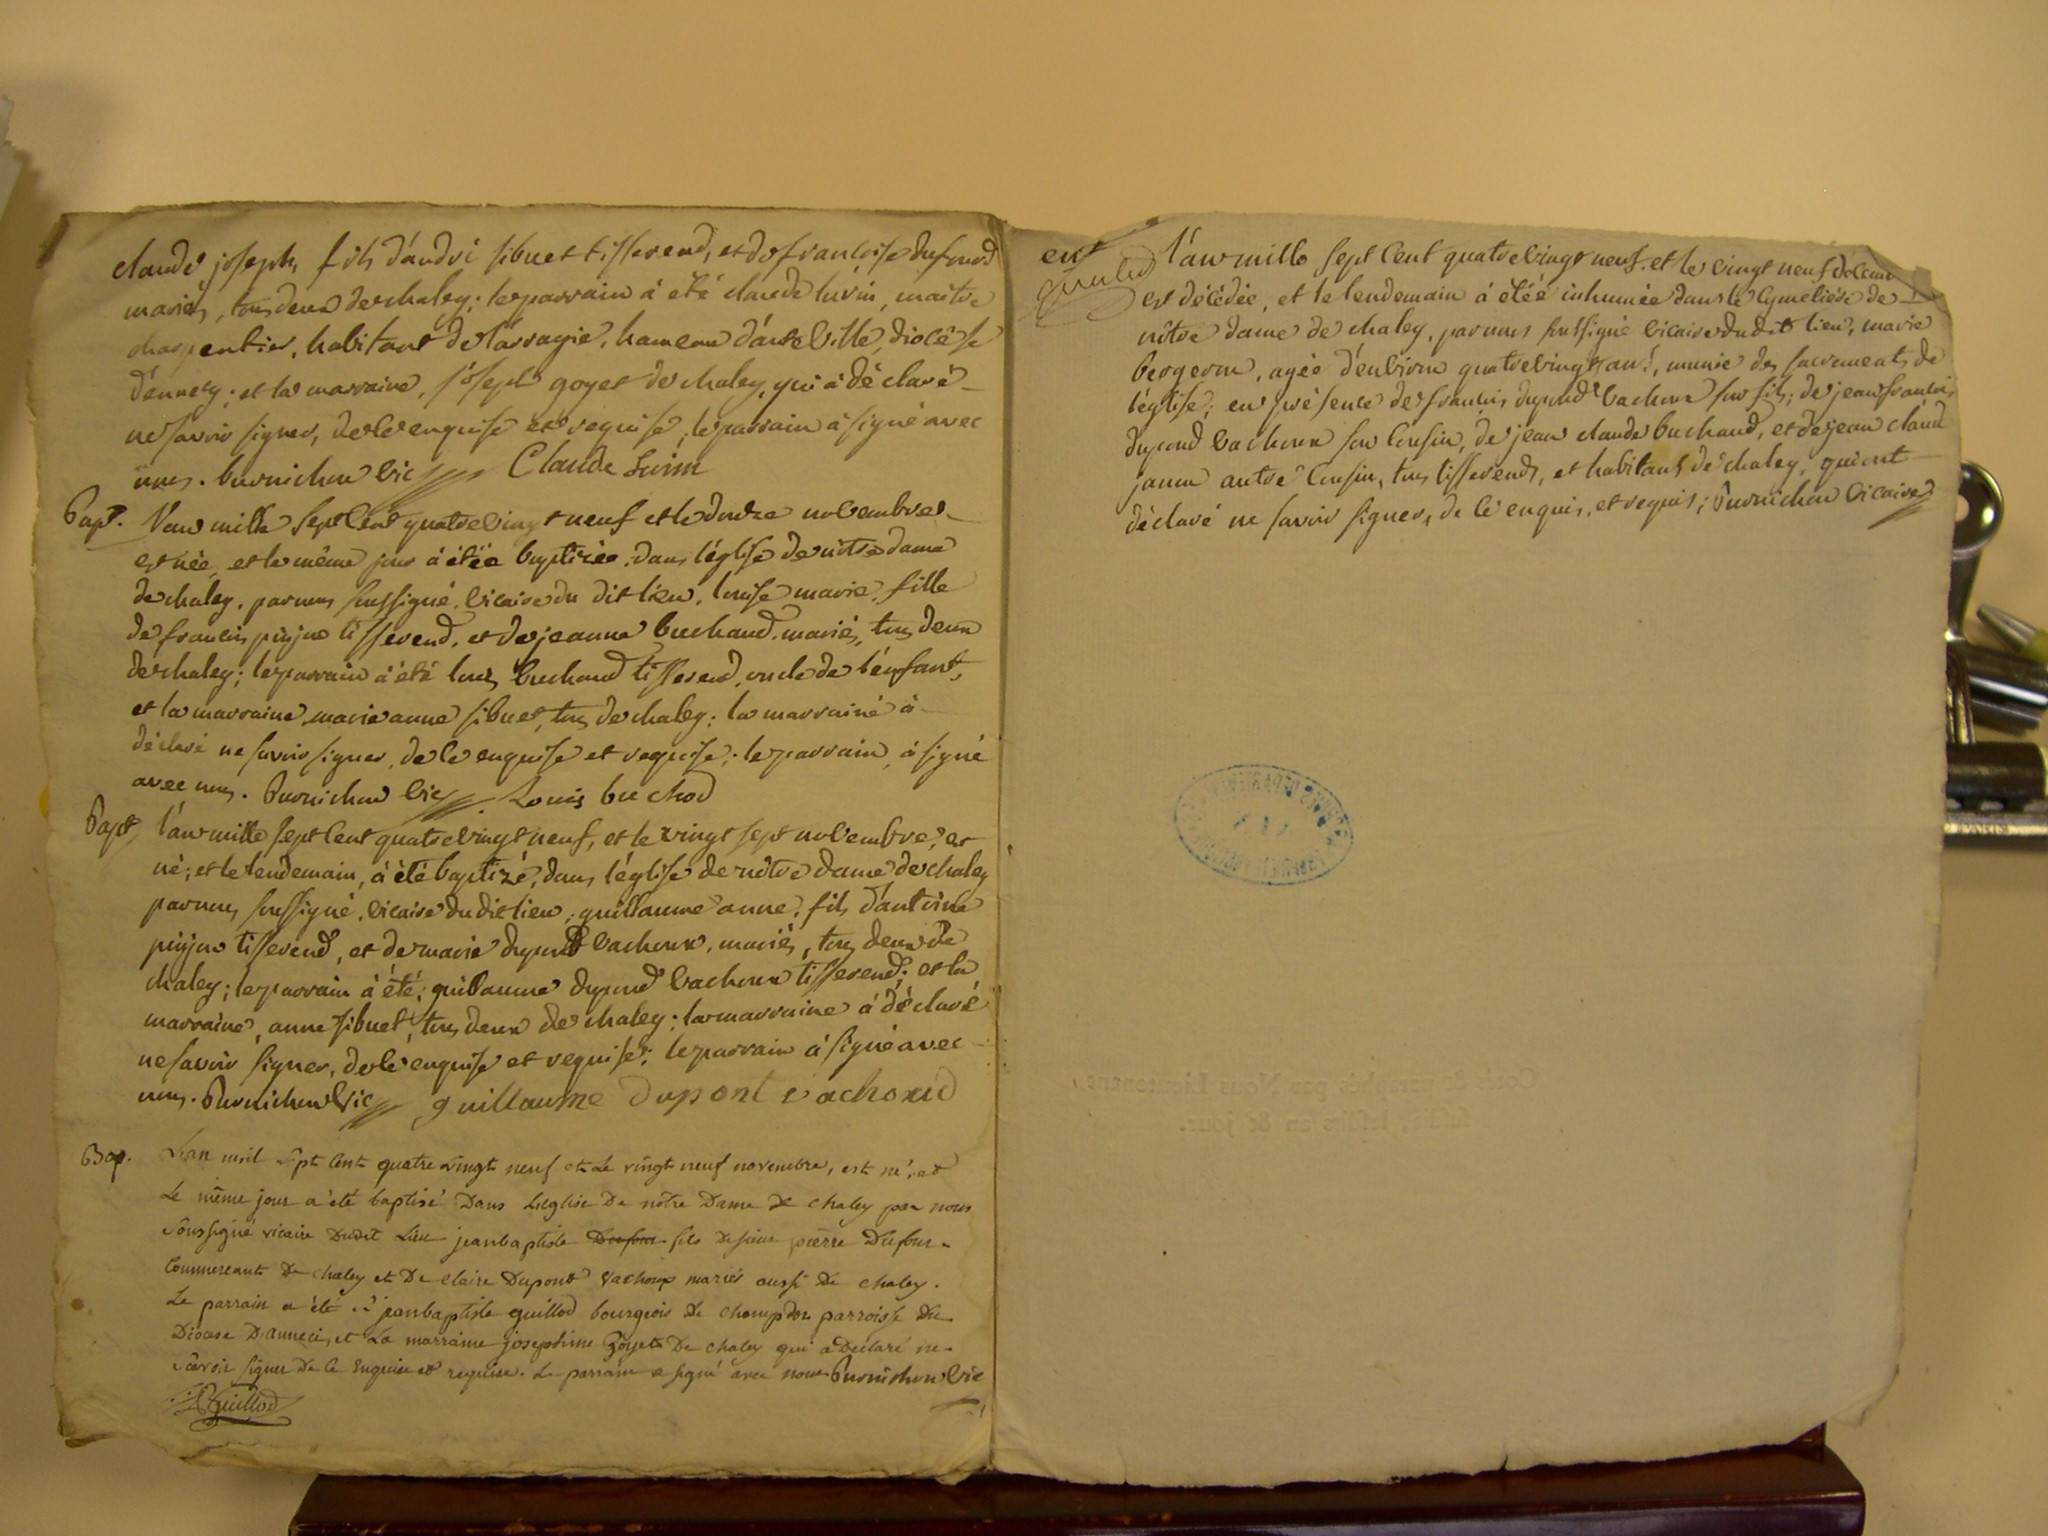 claude joseph, fils d'andré sibuet tisserend, et de françoise dufour
mariés, tous deux de chaley; le parrain à été claude luvin, maître
charpentier, habitant de hameau d'haute Ville, diocèse
d'ennecy; et la marraine, joseph goyet de chaley, qui à déclaré
ne savoir signer, de ce enquise et requise, le parrain à signé avec
nous. burnichon vic Claude Luvin
Bapt. L'an mille sept cent quatre vingt neuf et le douze novembre
est née, et le même jour à étée baptizée, dans l'église de nôtre dame
de chaley, par nous soussigné, vicaire du dit lieu, louise marie, fille
de françois tisserend, et de jeanne buchaud, mariés, tous deux
de chaley; le parrain à été louis buchaud tisserend, oncle de l'enfant,
et la marraine, marie anne sibuet, tous de chaley; la marraine à
déclaré ne savoir signer, de ce enquise et requise; le parrain, à signé
avec nous. Burnichon vic Louis buchod
Bapt. l'an mille sept cent quatre vingt neuf, et le vingt sept novembre, est
né; et le lendemain, à été baptizé, dans l'église de nôtre dame de chaley
par nous soussigné, vicaire du dit lieu, guillaume anne, fils d'antoine
tisserend, et de marie dupond vachoux, mariés, tous deux de
chaley; le parrain à été; guillaume dupond vachoux tisserend; et la
marraine, anne sibuet, tous deux de chaley; la marraine à déclaré
ne savoir signer, de ce enquise et requise; le parrain à signé avec
nous. Burnichon vic guillaume dupont vachoud
Bap. L'an mil sept cent quatre vingt neuf et le vingt neuf novembre, est né, et
le même jour a été baptisé dans l'église de nôtre Dame de chaley par nous
soussigné vicaire dudit lieu jeanbaptiste Dufour fils de sieur pierre Dufour
commercant de chaley et de claire Dupont vachoux mariés aussi de chaley.
Le parrain a été sr jeanbaptiste guillod bourgeois de champdor parroisse du
Diocese D'anneci, et La marraine josephine Goyet De chaley qui a Déclaré ne
savoir signer de ce enquise et requise. Le parrain a signé avec nous Burnichon vic
Guillod
ent
l'an mille sept cent quatre vingt neuf. et le vingt neuf décem
est décédée, et le lendemain à étéé inhumée dans le cymetiére de
nôtre dame de chaley, par nous soussigné vicaire du dit lieu, marie
bergeron, agée d'environ quatre vingt ans, munie des sacrements de
l'église; en présence de françois dupond vachoux son fils; de jean françois
dupond vachoux son cousin, de jean claude buchaud, et de jean claud
autre cousin, tous tisserends, et habitans de chaley, qui ont
déclaré ne savoir signer, de ce enquis, et requis; Burnichon vicaire